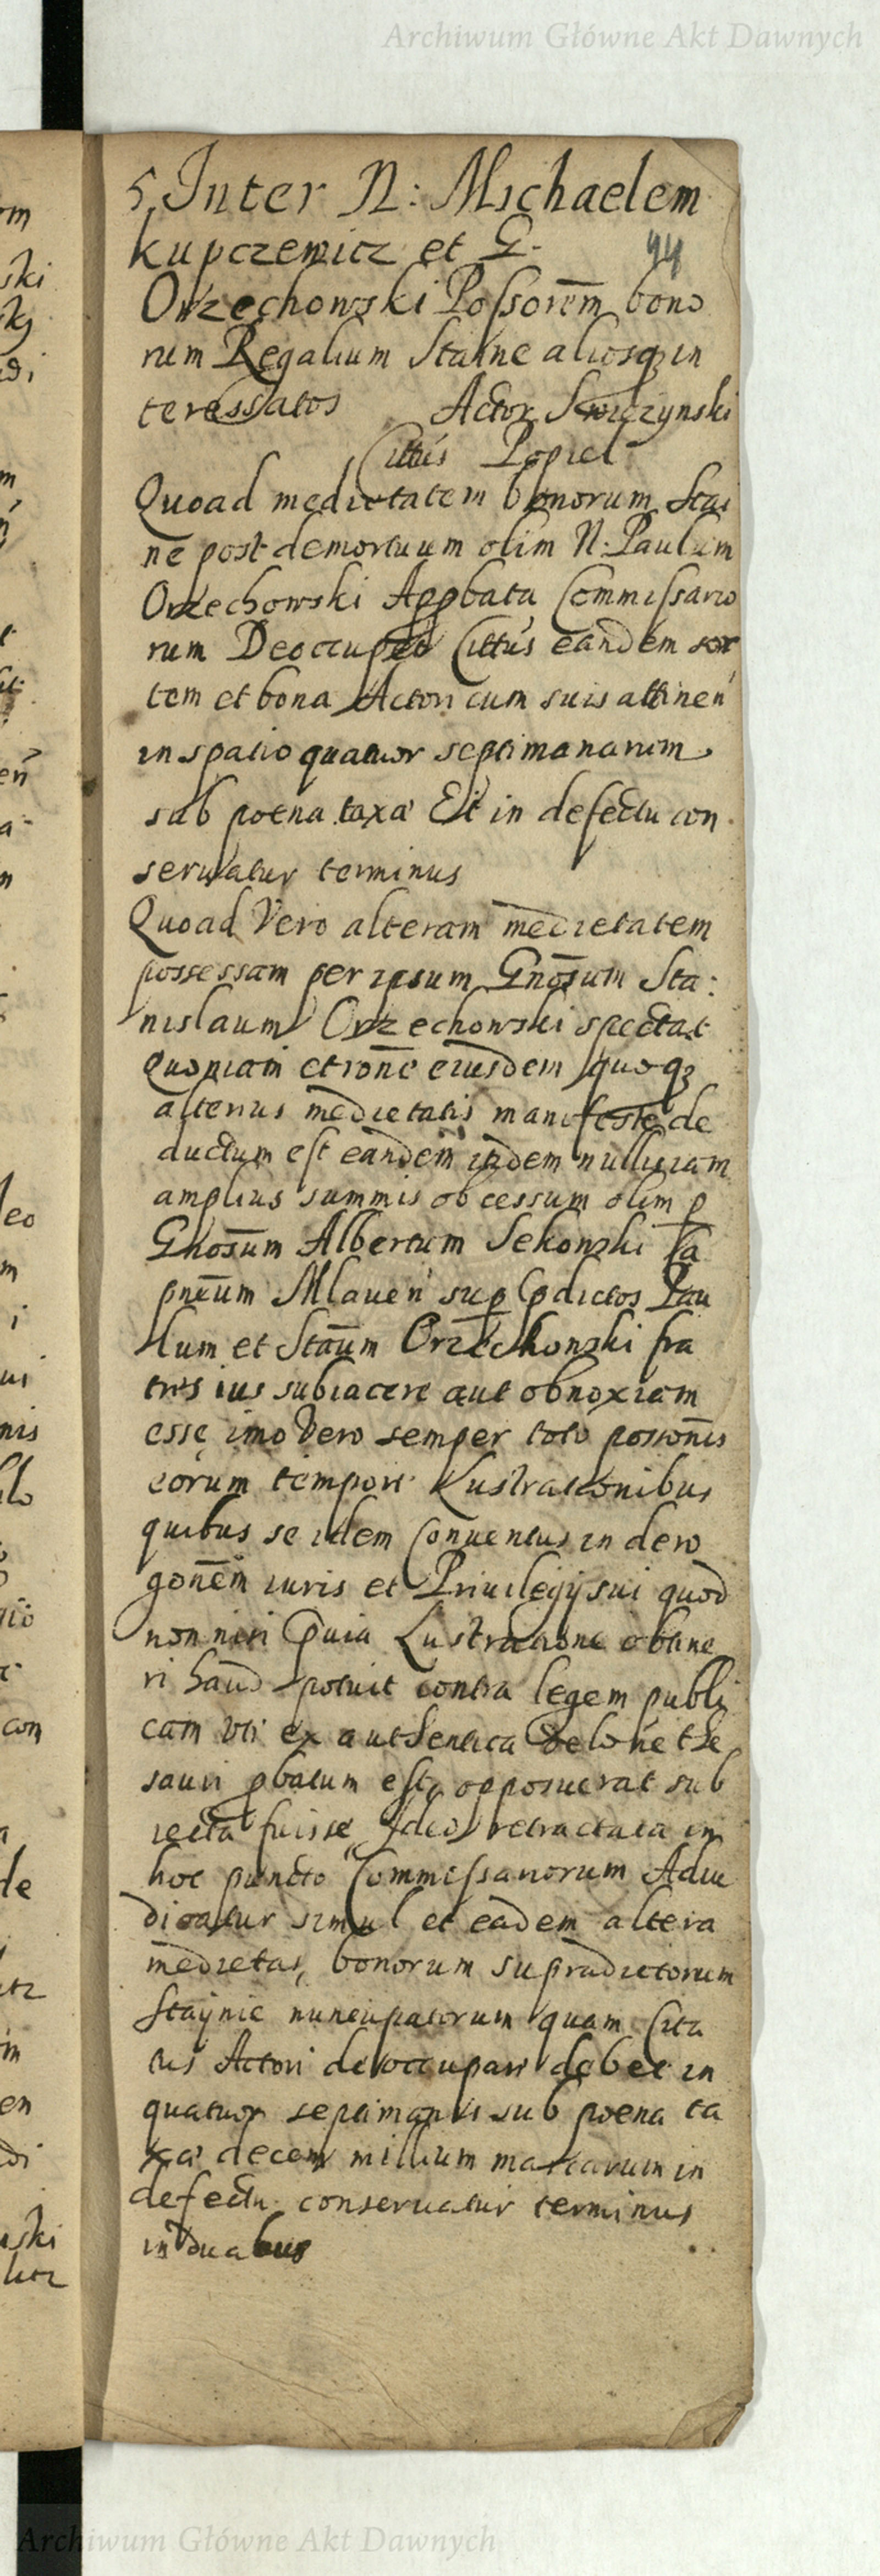 Archiwum Główne Akt Dawnych
5, Inter N: Michaelem
Kupczewicz et G.
44
Orzechowski Possorem bono
rum Regalium Staine aliosq in
teressatos Actor Swiczynski
Cittus Popiel
Quoad medietatem bonorum Stai
ne post demortuum olim N. Paulum
Orzechowski Appbata Commissario
rum Deoccupet Cittus eandem sor
tem et bona Actori cum suis attinen
in spatio quatuor septimanarum
sub poena taxa Et in defectu con
servatur terminus
Quoad Vero alteram medietatem
possessam per ipsum Gnosum Sta:
nislaum Orzechowski spectat
Quoniam et rone eiusdem quoq
alterius medietatis manifeste de
ductum est eandem itidem nulli iam
amplius summis obcessum olim p
Gnosum Albertum Sekowski Ca
pneum Mlaven sup pdictos Pau
lum et Staum Orzechowski fra
tres ius subiacere aut obnoxiam
esse imo Vero semper toto possonis
eorum tempore Lustrationibus
quibus se idem Conventus in dero
gonem iuris et Privilegij sui quod
non nisi Quia Lustratione obtine
ri haud potuit contra legem publi
cam uti ex authentica Delone the
sauri pbatum est opposuerat sub
iecta fuisse Ideo retractata in
hoc puncto Commissariorum Adiu
dicatur simul et eadem altera
medietas, bonorum supradictorum
Staynie nuncupatorum quam Cita
tus Actori deoccupari debet in
quatuor septimanis sub poena ta
xa decem millium marcarum in
defectu conservatur terminus
in duabus
Archiwum Główne Akt Dawnych